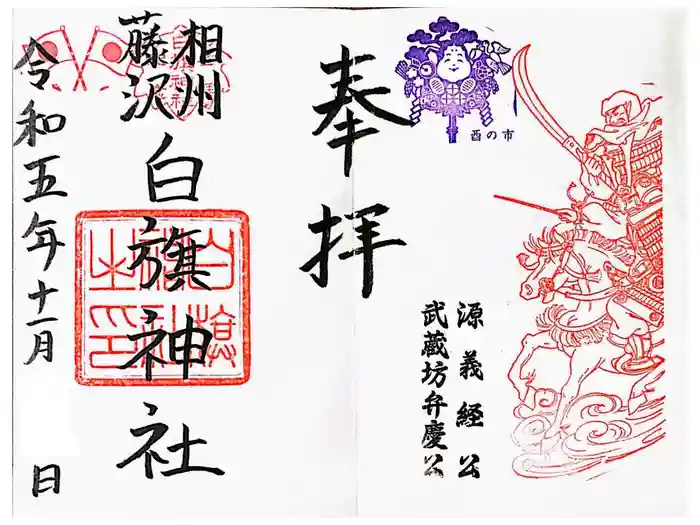 酉の市
源義経公
武蔵坊弁慶公
奉拝
相州
藤沢
白旗神社
白旗
神社
之印
令和五年十一月 日